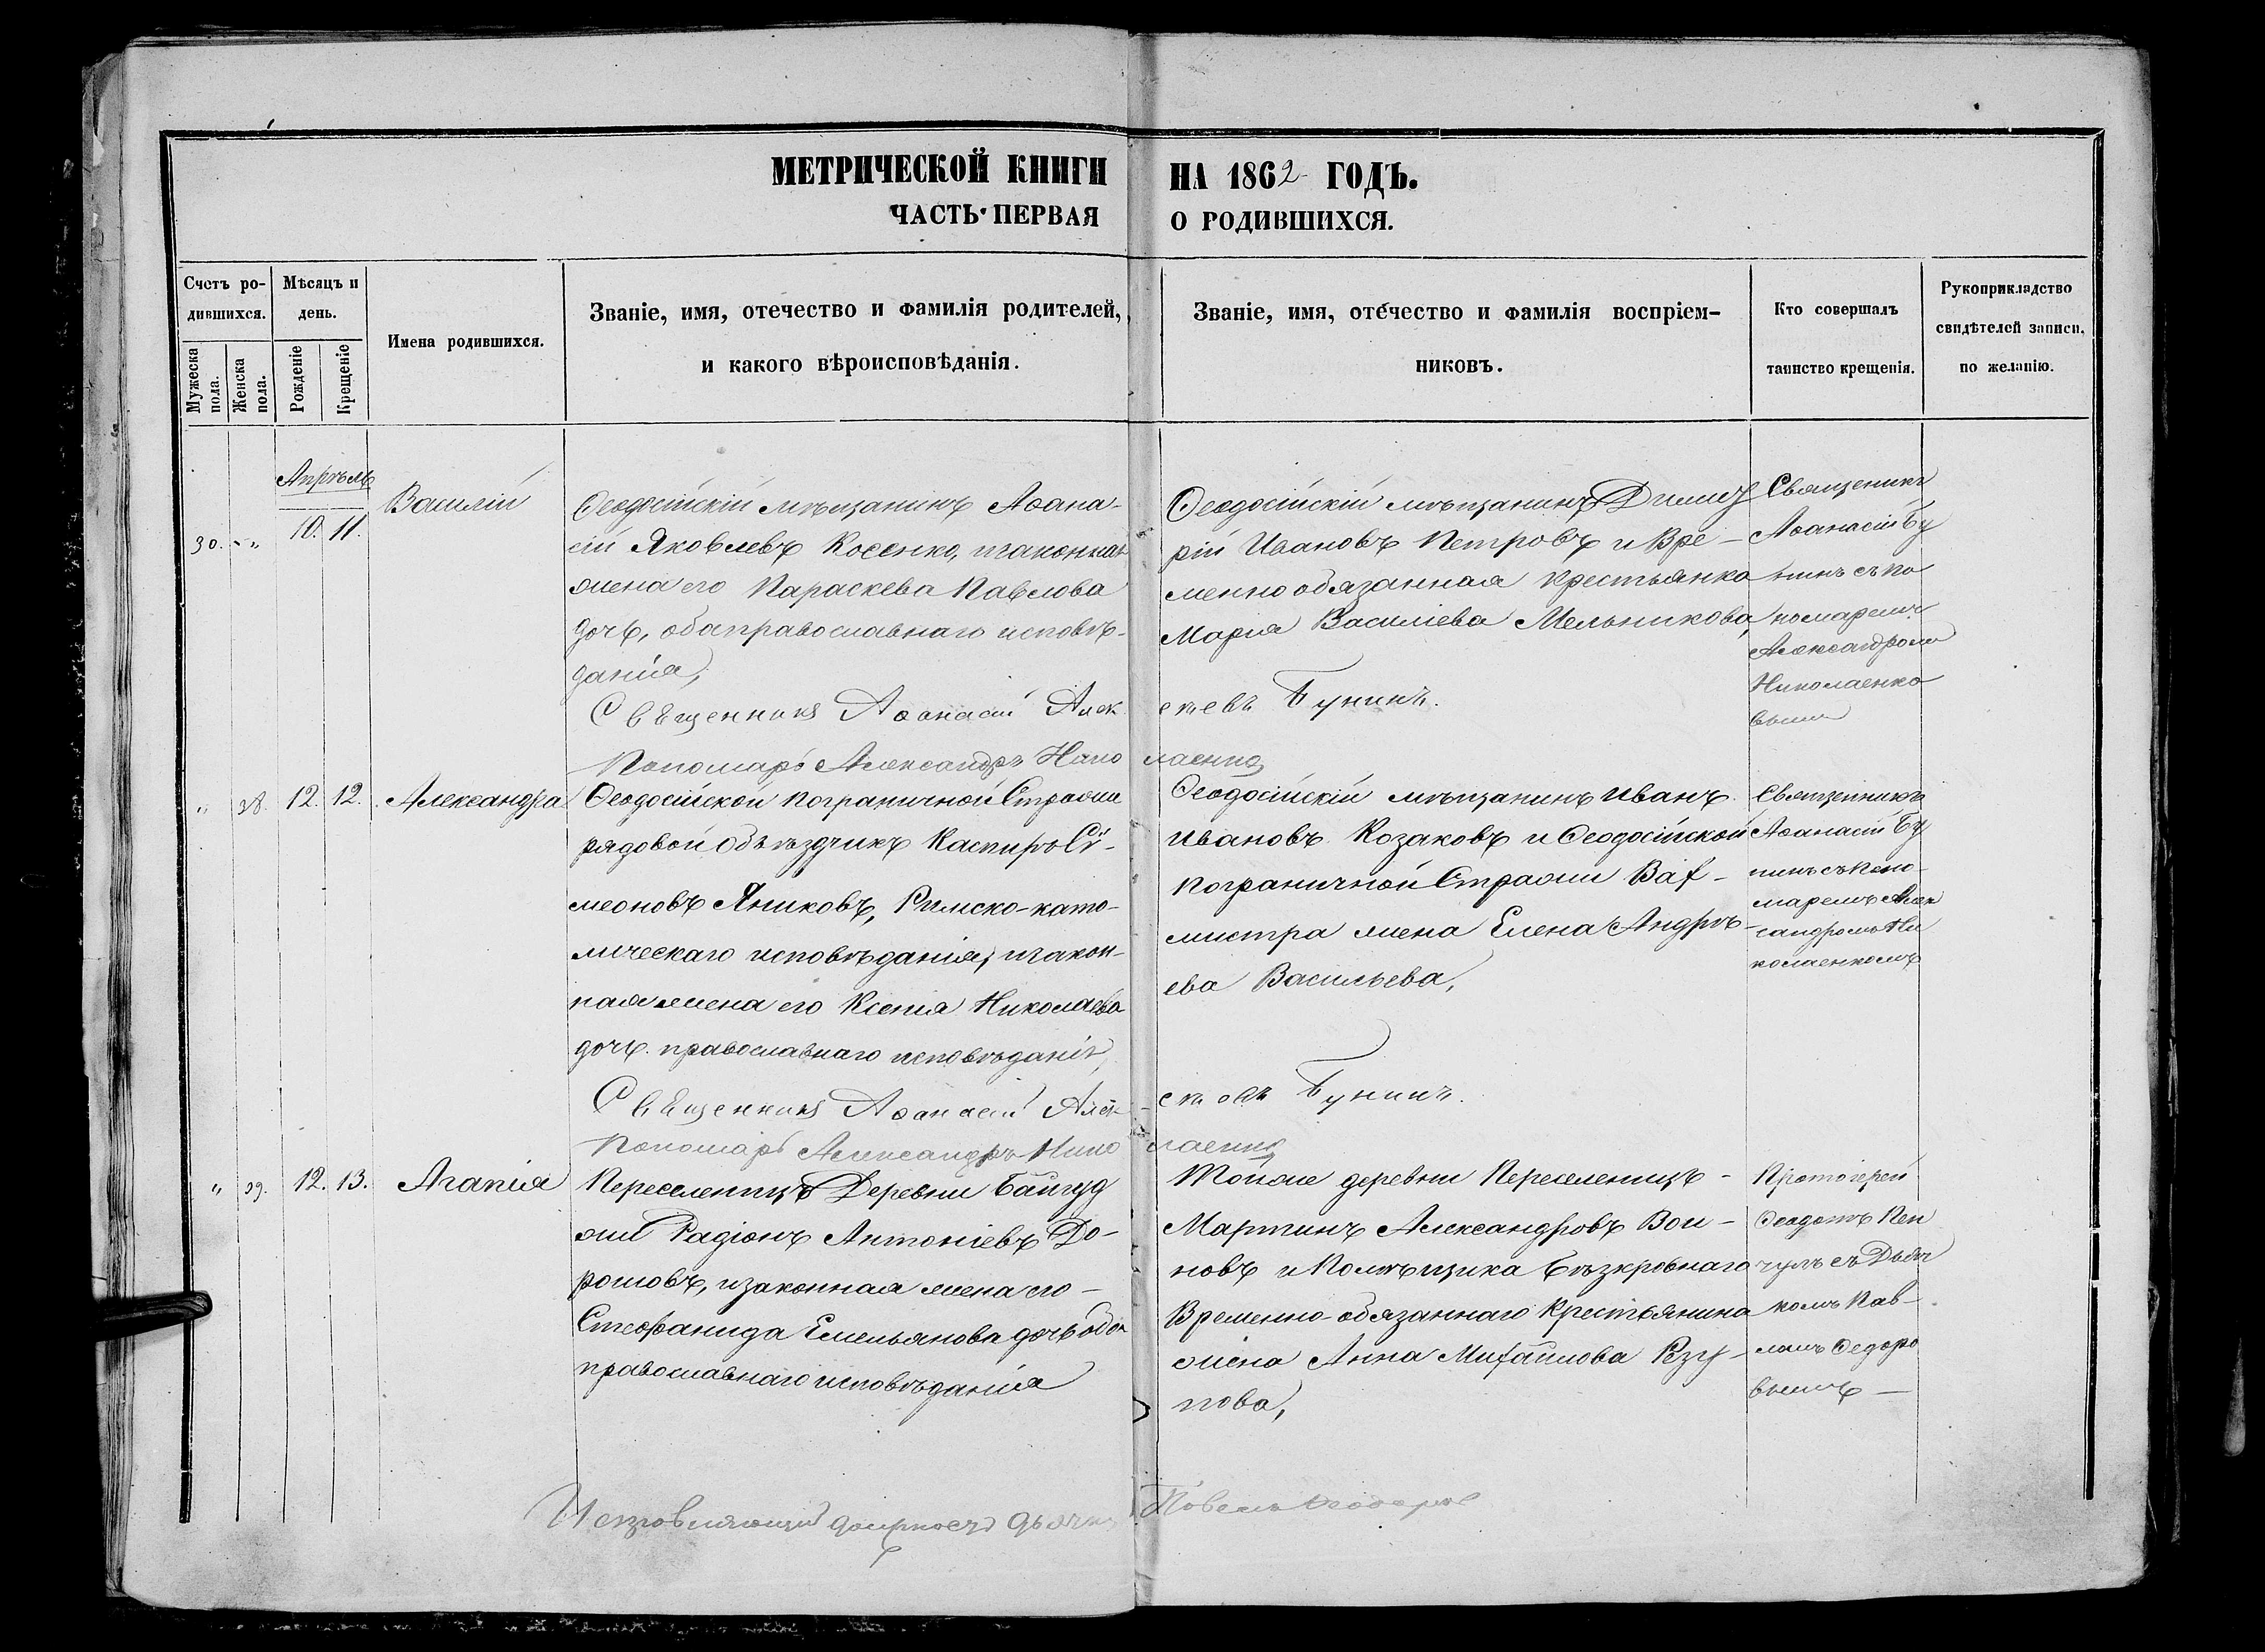 МЕТРИЧЕСКОЙ КНИГИ НА 1862 ГОДЪ.
ЧАСТЬ ПЕРВАЯ О РОДИВШИХСЯ.
Счетъ ро-
дившихся.
Мужеска
пола.
Женска
пола.
Мѣсяцъ и
день.
Рожденіе
Крещеніе
Имена родившихся.
Званіе, имя, отечество и фамилія родителей,
и какого вѣроисповѣданія.
Званіе, имя, отечество и фамилія воспріем-
никовъ.
Кто совершалъ
таинство крещенія.
Рукоприкладство
свидѣтелей записи,
по желанію.
Апрѣль
30. „ 10. 11.
Василій
Ѳеодосійскій мѣщанинъ Аѳана-
сій Яковлевъ Косенко, изаконная
жена его Параскева Павлова
дочь, оба православнаго исповѣ-
данія,
Ѳеодосійскій мѣщанинъ Дими
рій Ивановъ Петровъ и Вре-
менно обязанная крестьянка
Марія Василіева Мельникова,
Священикъ
Аѳанасій Бу
нинъ съ по
номаремъ
Александромъ
Николаенко
вымъ
Священникъ Аѳанасій Алек сѣевъ Бунинъ.
Пономарь Александръ Нико лаенко
„ 38. 12. 12. Александра
Ѳеодосійской пограничной Стражи
рядовой объѣздчикъ Каспиръ Сѵ-
меоновъ Яниковъ, Римско-като-
лическаго исповѣданія, изакон-
ная жена его Ксенія Николаева
дочь православнаго исповѣданія,
Ѳеодосійскій мѣщанинъ Иванъ
Ивановъ Козаковъ и Ѳеодосійской
пограничной Стражи Вах-
мистра жена Елена Андрѣ-
ева Васильева,
Священникъ
Аѳанасій Бу
нинъ съ поно-
маремъ Алек
сандромъ Ни
колаенкомъ
Священникъ Аѳанасій Алек сѣевъ Бунинъ.
Пономарь Александръ Нико лаенко
„ 39. 12. 13. Агапія
Переселенецъ Деревни Байгуд
жи Радіонъ Антоніевъ До-
рошовъ, изаконная жена его-
Стефанида Емельянова дочь оба
православнаго исповѣданія
Тойже деревни Переселенецъ -
Мартинъ Александровъ Вои-
новъ и Помѣщика Безкровнаго
Временно-обязаннаго крестьянина
жена Анна Михайлова Рзу-
нова,
Протоіерей
Ѳеодотъ Пен
чулъ съ Дьяч
комъ Пав-
ломъ Ѳедоро
вымъ -
Исправляющій должность дьячка Павелъ Ѳеодоровъ